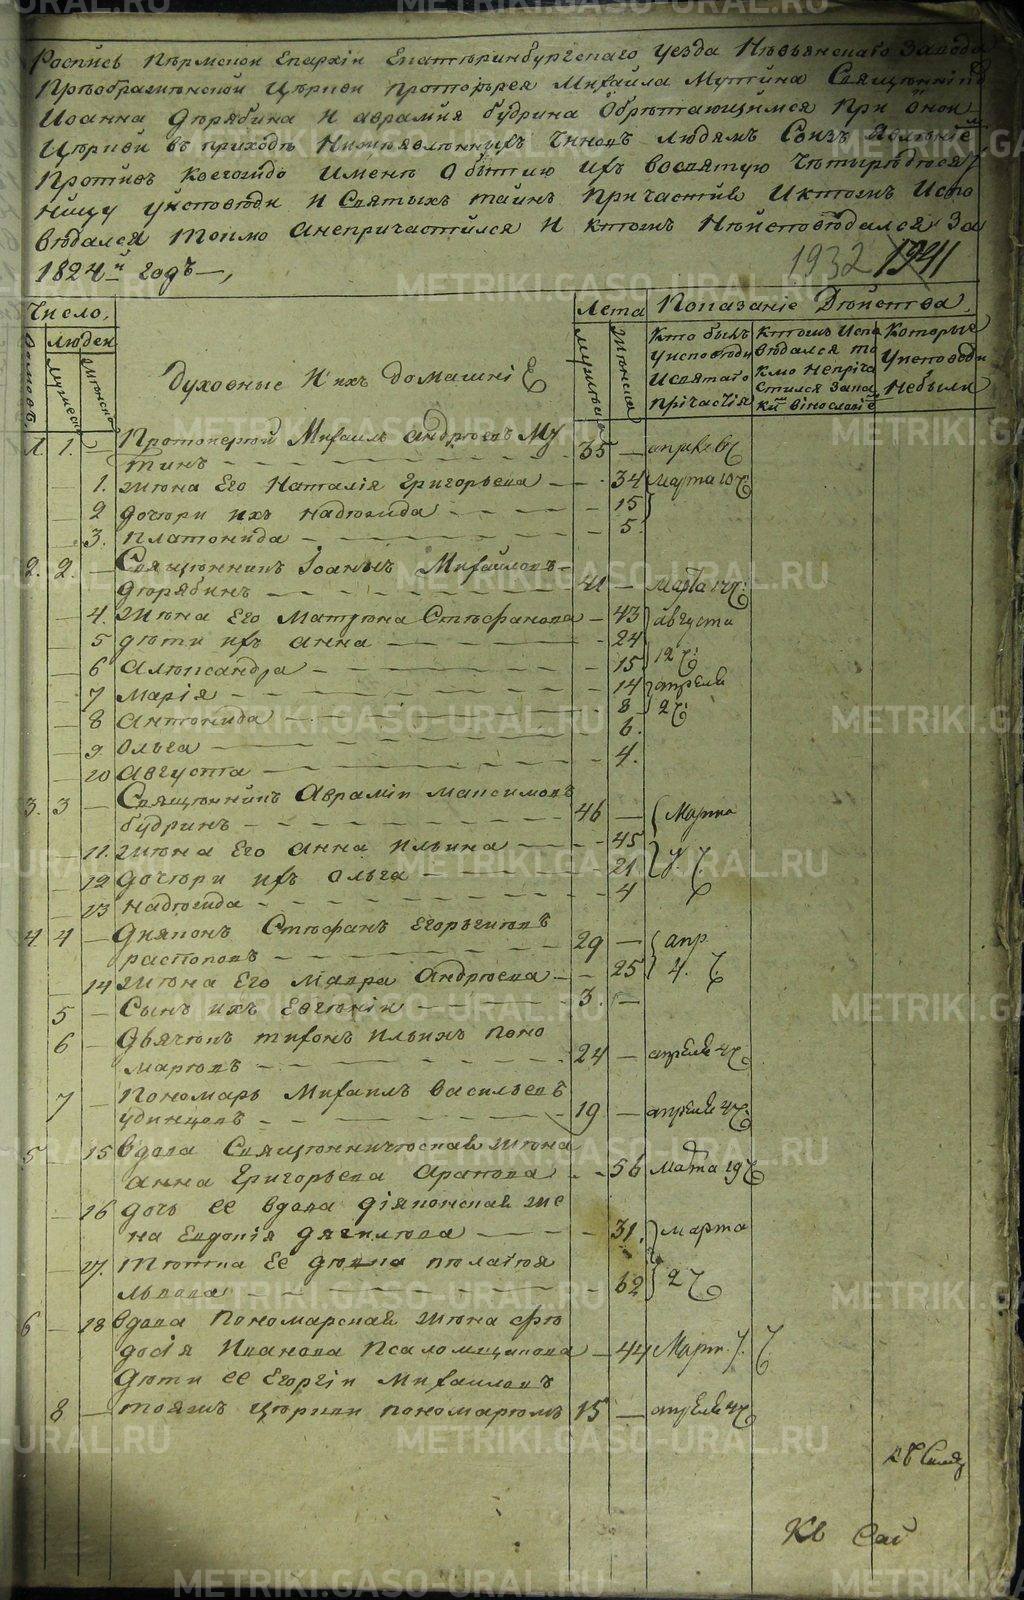 Роспись Пермской Епархіи Екатеринбургскаго уезда Невьянскаго Завода
Преображенской Церкви Протоіерея Михаила Мутина Священников
Иоанна Дерябина и аврамия будрина Обретающимся При оной
Церкви въ приходе Нижеявленныхъ Чиновъ людямъ Сыз явлениемъ
Противъ коегождо имени О бытию ихъ восвятую Четыредесят
ницу уисповеди и Святыхъ таинъ Причастие И ктожъ Испо
ведался токмо анепричастился И ктожъ Неисповедался За
1824й годъ
1932 1941
Число,
людей
домовъ
мужеска
женска
Духовные И ихъ домашніе
Лета
мужеска
женска
Показаніе Действа
Кто былъ уисповеди Исвятаго Прічастія
Ктожъ Испо ведался то кмо непріча стился Запа кимъ віно словіе
Которые Уисповеди Небыли
1 1. — Протоиерей Михаилъ андреевъ Му
тинъ 35 —
1. жена Его Наталія Григорьева 34 Марта 10 ч
2 дочери ихъ надежда 15
3. платонида 5.
2. 2. — Священникъ Іоаннъ Михайловъ
дерябинъ 41 — марта
4. жена Его Матрена Стефанова 43 августа
5 дети ихъ анна 24
6 Александра 15 12 ч:
7 Марія 14 апреля
8 антонида 8 2 ч:
9. Ольга 6.
10 августа 4.
3. 3 — Священникъ Аврамій Максимовъ
будринъ 46 — Марта
11. жена Его анна Ильина 45
12 дочери ихъ Ольга 21
13 надежда 4
4 4 — Дияконъ Стефанъ Егорьевъ
распоповъ 29 — апр
14 жена Его Мавра Андреева 25 4. ч.
5 — Сынъ ихъ Евгений 3. —
6 — Дьячекъ тихонъ Ильинъ поно
маревъ 24 — апреля 4 ч
7 — Пономарь Михаилъ Васильевъ
удинцовъ 19 — апреля 4 ч
5 15 вдова Священническая жена
анна Григорьева Арапова 56 марта 19 ч
16 дочь ее вдова діяконская же
на Евдокія Дягилева 31. Марта
17. тетка Ее девка пелагея
львова 62 2 ч
6 18 вдова пономарская жена фе
досія Иванова Псаломщикова 44 Март. 7. ч
Дети ее Егоргій Михаиловъ
8 — тояжъ Церкви пономаремъ 15 — апреля 4 ч
METRIKI.GASO-URAL.RU